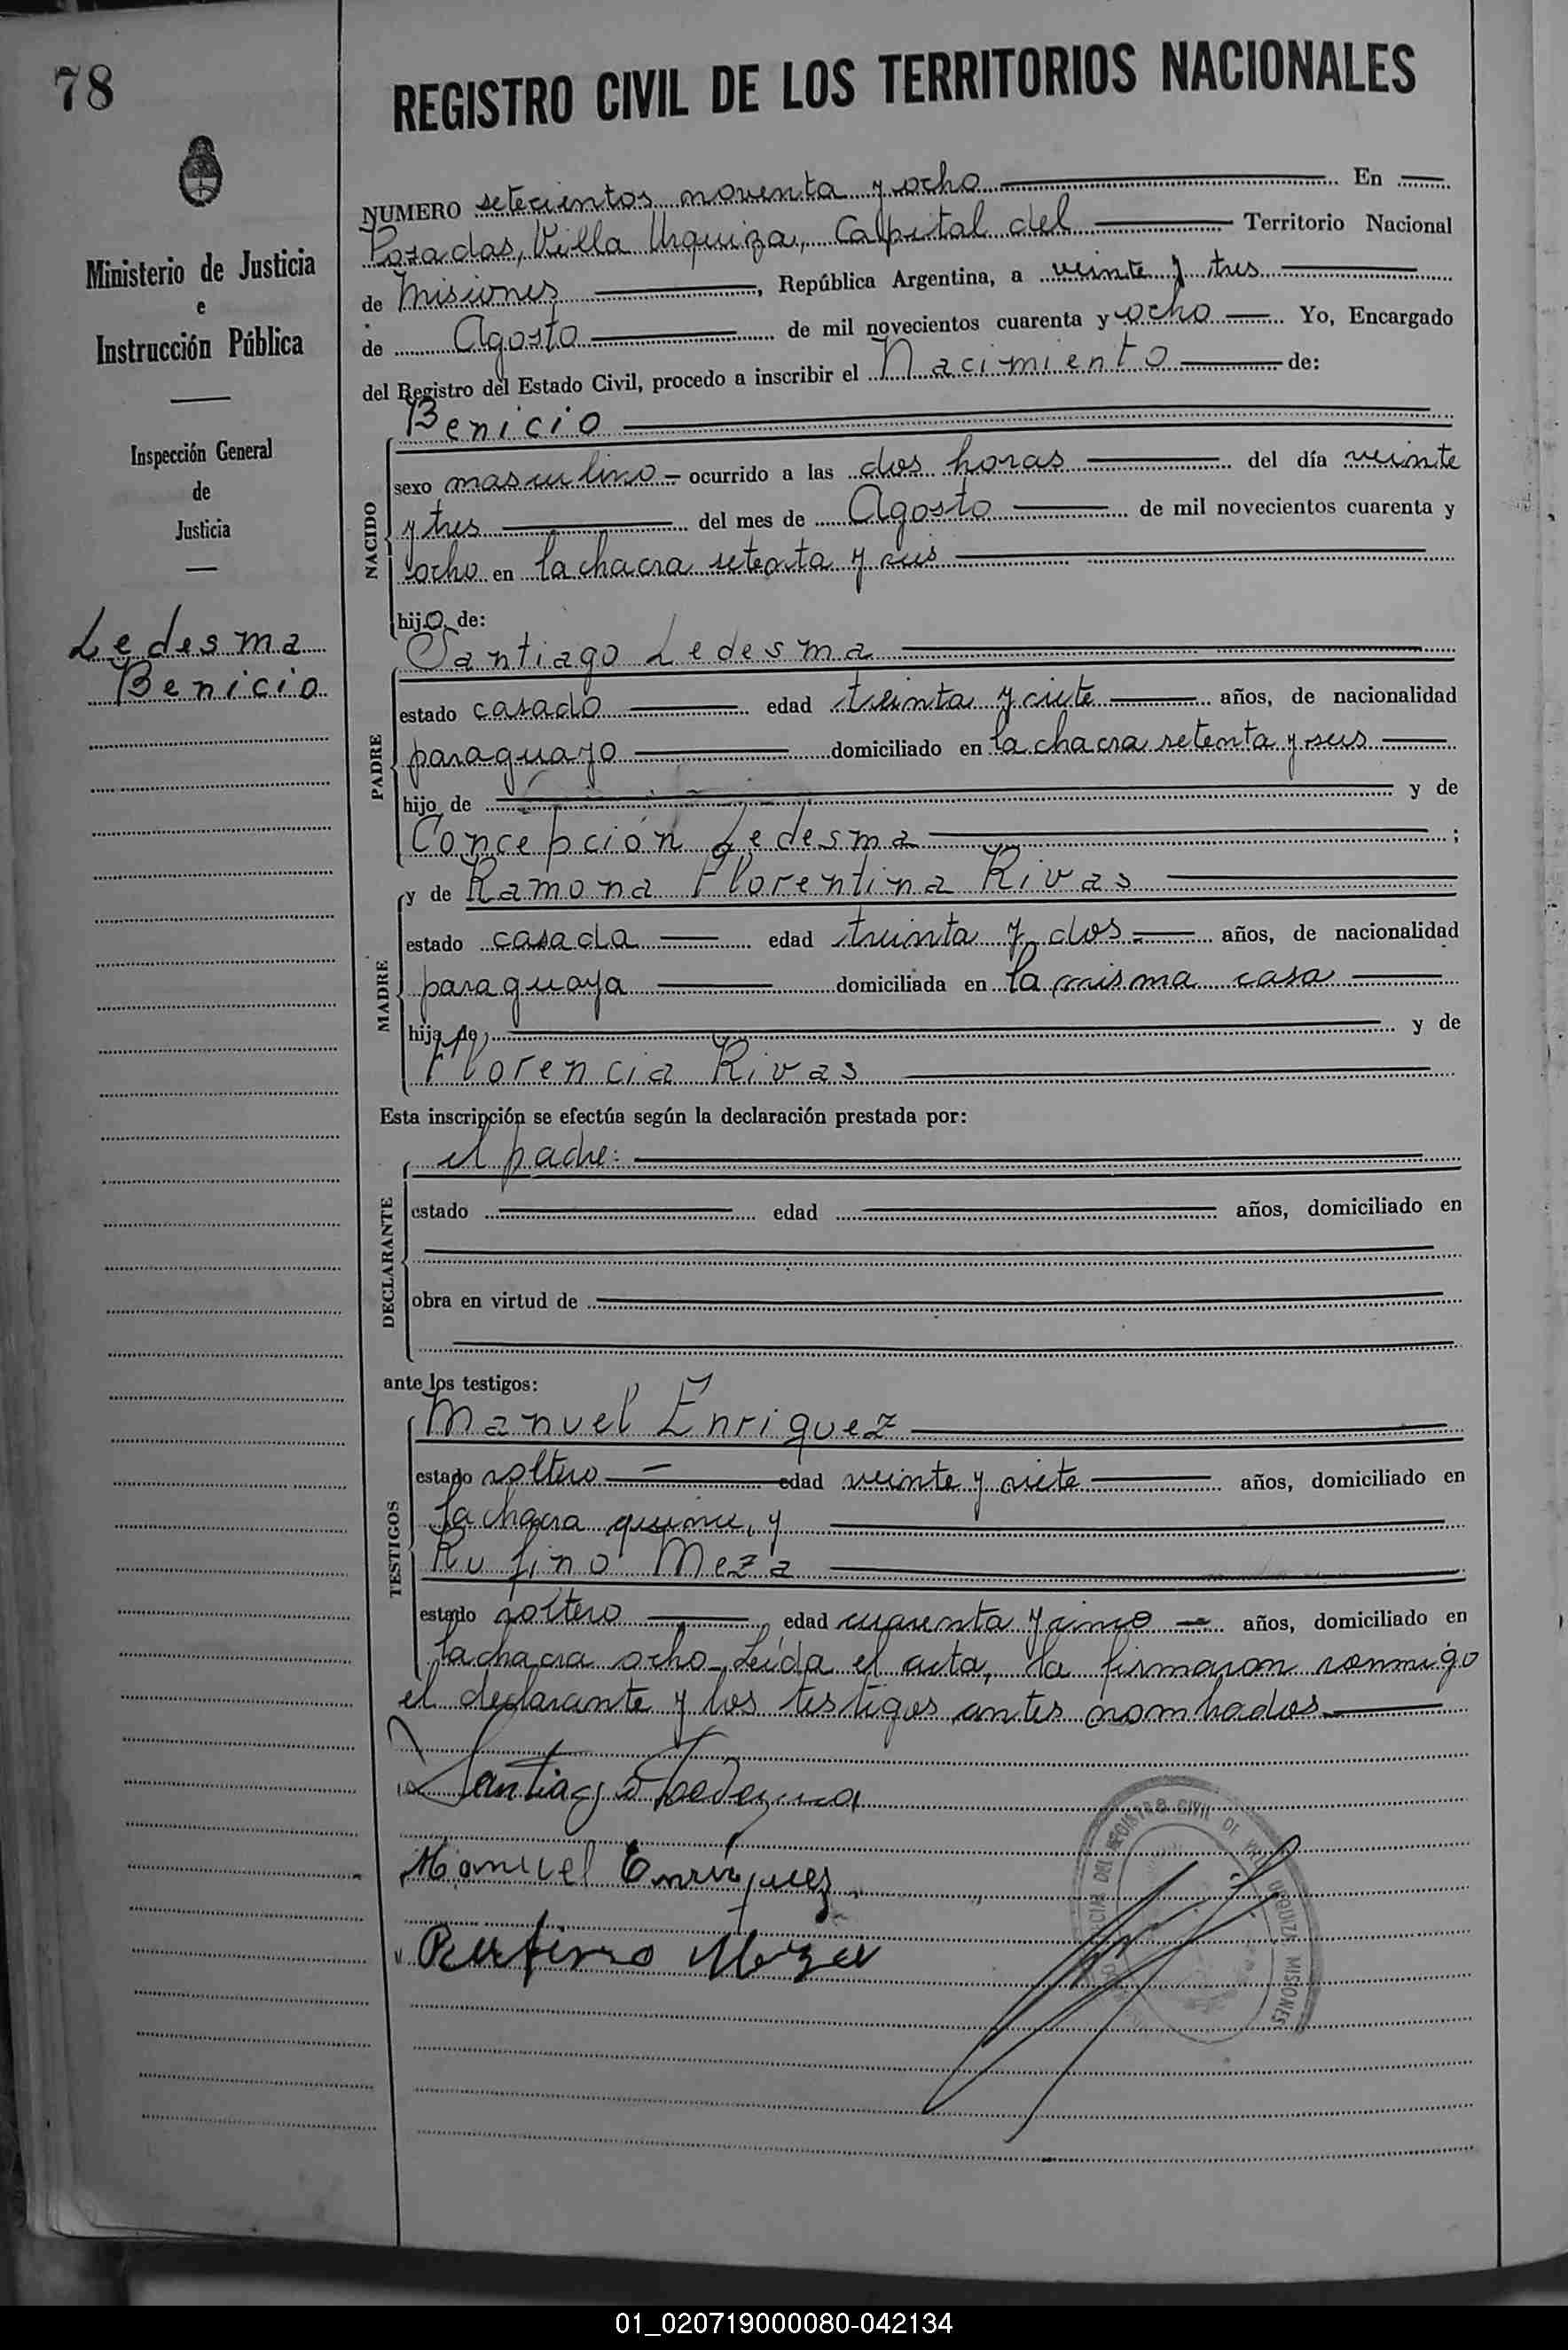 78
REGISTRO CIVIL DE LOS TERRITORIOS NACIONALES
Ministerio de Justicia
e
Instrucción Pública
Inspección General
de
Justicia
Ledesma
Benicio
NUMERO setecientos noventa y ocho En
Posadas, Villa Urquiza, Capital del Territorio Nacional
de Misiones, República Argentina, a veinte y tres
de Agosto de mil novecientos cuarenta y ocho Yo, Encargado
del Registro del Estado Civil, procedo a inscribir el Nacimiento de:
NACIDO
Benicio
sexo masculino - ocurrido a las dos horas del día veinte
y tres del mes de Agosto de mil novecientos cuarenta y
ocho en la chacra setenta y seis
hijo de:
PADRE
Santiago Ledesma
estado casado edad treinta y siete años, de nacionalidad
paraguayo domiciliado en la chacra setenta y seis
hijo de y de
Concepción Ledesma ;
MADRE
y de Ramona Florentina Rivas
estado casada edad treinta y dos años, de nacionalidad
paraguaya domiciliada en la misma casa
hija de y de
Florencia Rivas
Esta inscripción se efectúa según la declaración prestada por:
DECLARANTE
el padre:
estado edad años, domiciliado en
obra en virtud de
ante los testigos:
TESTIGOS
Manuel Enriquez
estado soltero edad veinte y siete años, domiciliado en
la chacra quince, y
Rufino Meza
estado soltero edad cuarenta y cinco años, domiciliado en
la chacra ocho_ Leída el acta, la firmaron conmigo
el declarante y los testigos antes nombrados.
Santiago Ledezma
Manuel Enriquez
Rufino Meza
DEL REGISTRO CIVIL DE VILLA URQUIZA MISIONES
01_020719000080-042134